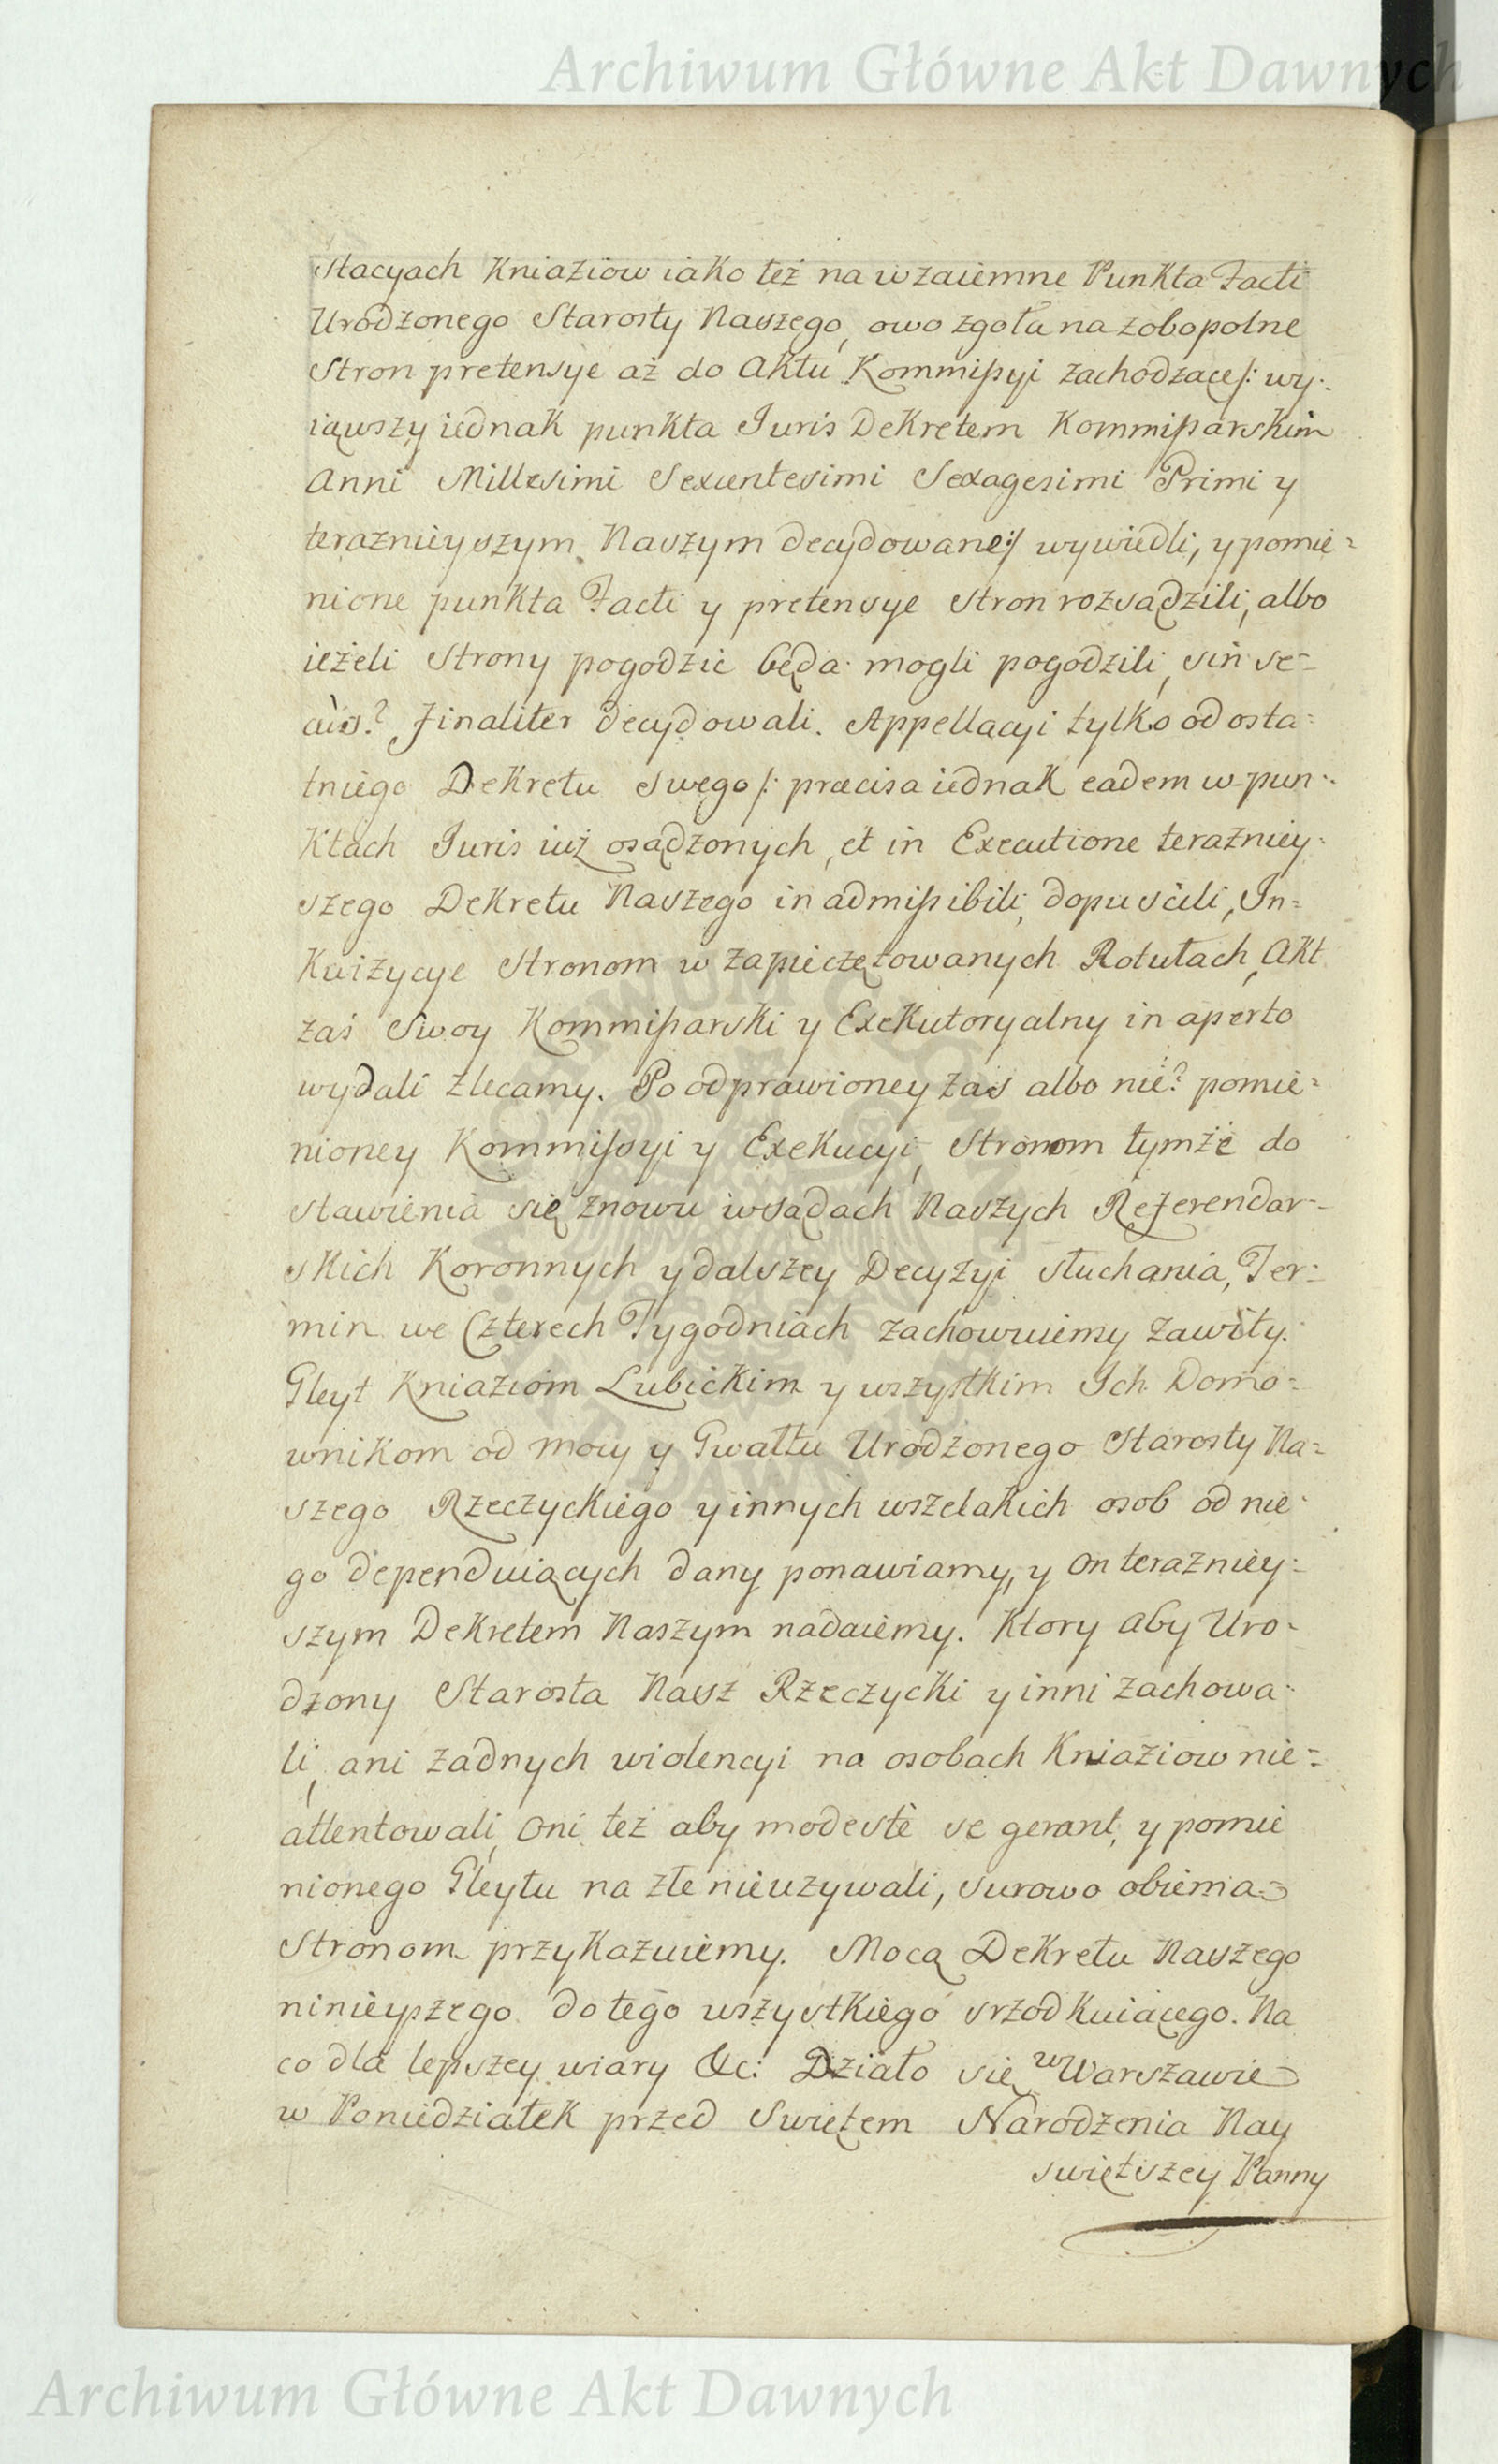 Archiwum Główne Akt Dawnych
stacyach Kniaziow iako też na wzaiemne Punkta Facti
Urodzonego Starosty Naszego, owo zgoła na zobopolne
Stron pretensye aż do Aktu Kommissyi zachodzące /: wy-
iąwszy iednak punkta Juris Dekretem Kommissarskim
Anni Millesimi Sexcentesimi Sexagesimi Primi y
teraznieyszym Naszym decydowane :/ wywiedli, y pomie=
nione punkta Facti y pretensye stron rozsądzili, albo
ieżeli Strony pogodzic będą mogli pogodzili, sin se=
cùs? Finaliter decydowali. Appellacyi tylko od osta=
tniego Dekretu swego /: præcisa iednak eadem w pun=
ktach Juris iuż osądzonych, et in Executione teraźniey=
szego Dekretu Naszego inadmissibili, dopuscili, In=
kwizycye Stronom w zapieczętowanych Rotułach, Akt
zaś Swoy Kommissarski y Exekutoryalny in aperto
wydali zlecamy. Po odprawioney zas albo nie? pomie=
nioney Kommissyi y Exekucyi, Stronom tymże do
stawienia się znowu w sądach Naszych Referendar=
skich Koronnych y dalszey Decyzyi słuchania, Ter=
min we Czterech Tygodniach zachowuiemy zawity.
Gleyt Kniaziom Lubickim y wszystkim Ich Domo=
wnikom od mocy y Gwałtu Urodzonego Starosty Na=
szego Rzeczyckiego y innych wszelakich osob od nie=
go dependuiących dany ponawiamy, y on teraźniey=
szym Dekretem Naszym nadaiemy. Ktory aby Uro=
dzony Starosta Nasz Rzeczycki y inni zachowa=
li, ani żadnych wiolencyi na osobach Kniaziow nie=
attentowali, oni też aby modestè se gerant, y pomie
nionego Gleytu na złe nieuzywali, surowo obiema
Stronom przykazuiemy. Mocą Dekretu Naszego
ninieyszego do tego wszystkiego srzodkuiącego. Na
co dla lepszey wiary &c: Działo się w Warszawie
w Poniedziałek przed Swiętem Narodzenia Nay
swiętszey Panny
Archiwum Główne Akt Dawnych